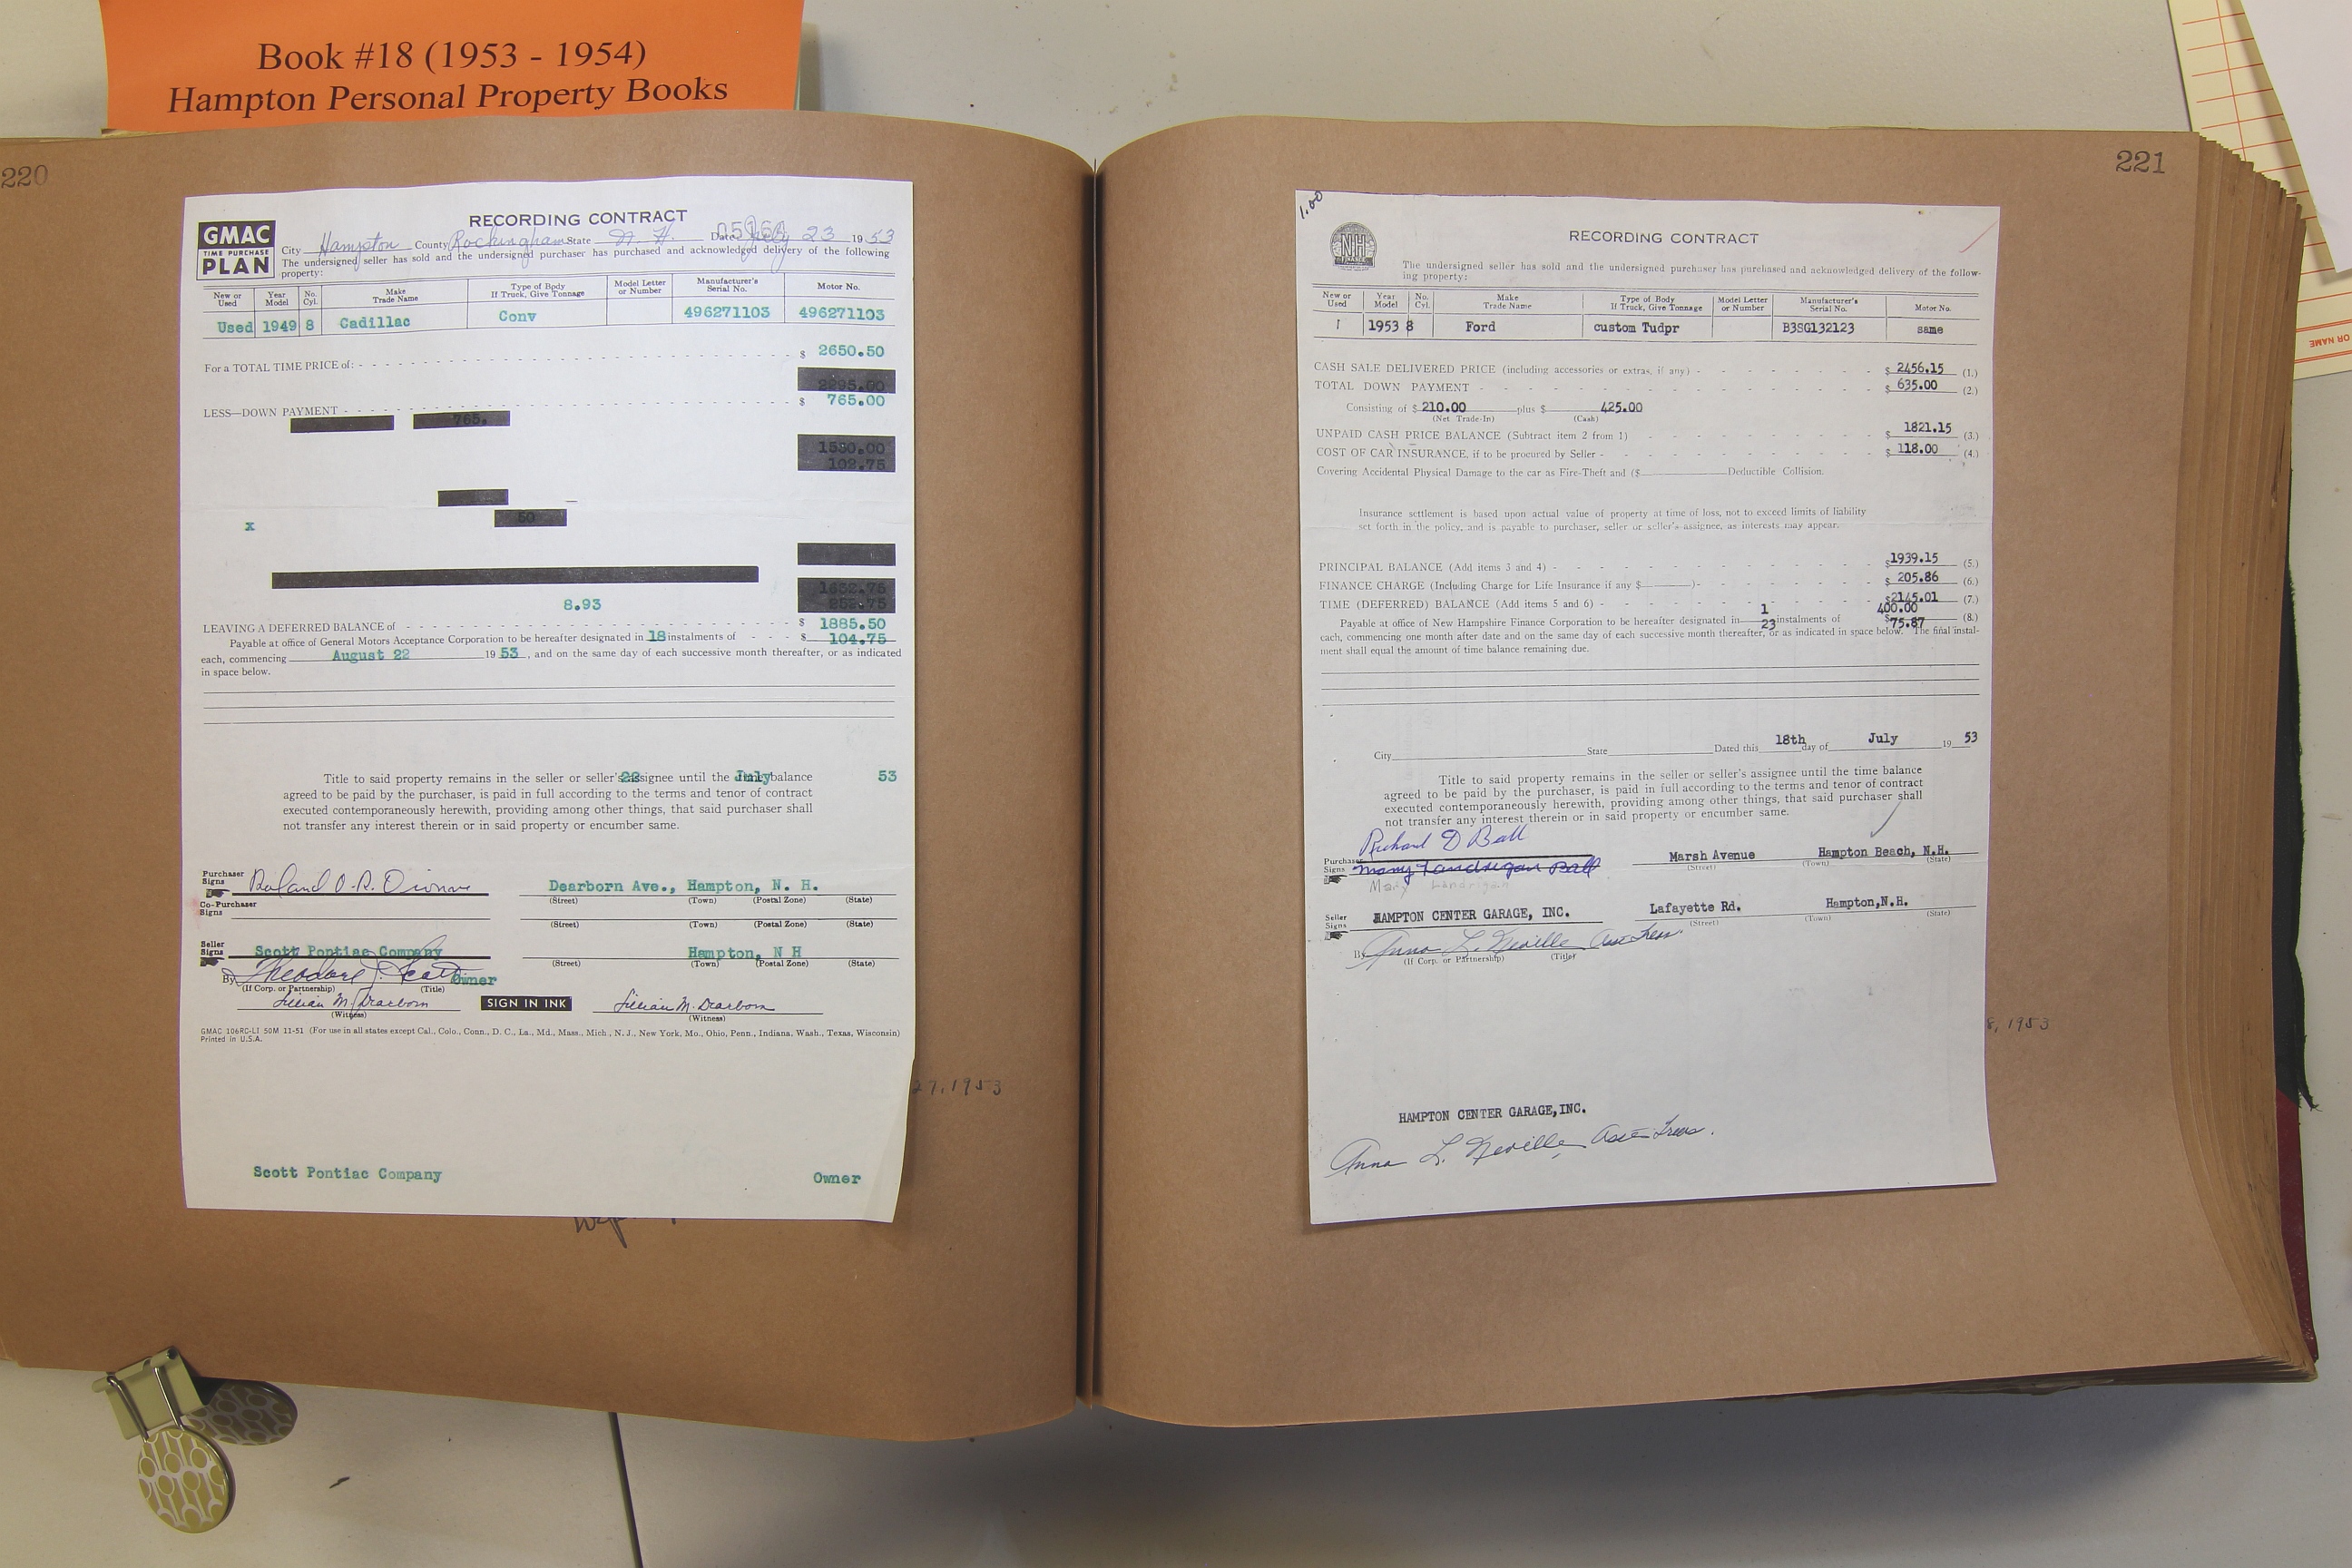 Book #18 (1953 - 1954)
Hampton Personal Property Books
220
GMAC
TIME PURCHASE
PLAN
RECORDING CONTRACT
City Hampton County Rockingham State N. H. Date July 23 1953
The undersigned seller has sold and the undersigned purchaser has purchased and acknowledged delivery of the following
property:
New or Used Year Model No. Cyl. Make Trade Name Type of Body If Truck, Give Tonnage Model Letter or Number Manufacturer's Serial No. Motor No.
Used 1949 8 Cadillac Conv 496271103 496271103
For a TOTAL TIME PRICE of: $ 2650.50
2295.00
LESS—DOWN PAYMENT $ 765.00
765.
1530.00
102.75
50
x
1632.75
252.75
8.93
LEAVING A DEFERRED BALANCE of $ 1885.50
Payable at office of General Motors Acceptance Corporation to be hereafter designated in 18 instalments of $ 104.75
each, commencing August 22 19 53, and on the same day of each successive month thereafter, or as indicated
in space below.
Title to said property remains in the seller or seller's assignee until the time balance 22 July 53
agreed to be paid by the purchaser, is paid in full according to the terms and tenor of contract
executed contemporaneously herewith, providing among other things, that said purchaser shall
not transfer any interest therein or in said property or encumber same.
Purchaser Signs Roland O.R. Dionne Dearborn Ave., Hampton, N. H.
(Street) (Town) (Postal Zone) (State)
Co-Purchaser Signs
(Street) (Town) (Postal Zone) (State)
Seller Signs Scott Pontiac Company Hampton, N H
(Street) (Town) (Postal Zone) (State)
By Theodore J. Scott Owner
(If Corp. or Partnership) (Title)
Lillian M. Dearborn SIGN IN INK Lillian M. Dearborn
(Witness) (Witness)
GMAC 106RC-LI 50M 11-51 (For use in all states except Cal., Colo., Conn., D. C., La., Md., Mass., Mich., N. J., New York, Mo., Ohio, Penn., Indiana, Wash., Texas, Wisconsin)
Printed in U.S.A.
27, 1953
Scott Pontiac Company Owner
221
1.00
NH
RECORDING CONTRACT
The undersigned seller has sold and the undersigned purchaser has purchased and acknowledged delivery of the follow-
ing property:
New or Used Year Model No. Cyl. Make Trade Name Type of Body If Truck, Give Tonnage Model Letter or Number Manufacturer's Serial No. Motor No.
1953 8 Ford custom Tudpr B3SG132123 same
CASH SALE DELIVERED PRICE (including accessories or extras, if any) $ 2456.15 (1.)
TOTAL DOWN PAYMENT $ 635.00 (2.)
Consisting of $ 210.00 plus $ 425.00
(Net Trade-In) (Cash)
UNPAID CASH PRICE BALANCE (Subtract item 2 from 1) $ 1821.15 (3.)
COST OF CAR INSURANCE, if to be procured by Seller $ 118.00 (4.)
Covering Accidental Physical Damage to the car as Fire-Theft and ($ Deductible Collision.
Insurance settlement is based upon actual value of property at time of loss, not to exceed limits of liability
set forth in the policy, and is payable to purchaser, seller or seller's assignee, as interests may appear.
PRINCIPAL BALANCE (Add items 3 and 4) $ 1939.15 (5.)
FINANCE CHARGE (Including Charge for Life Insurance if any $ ) $ 205.86 (6.)
TIME (DEFERRED) BALANCE (Add items 5 and 6) $ 2145.01 (7.)
1 400.00
Payable at office of New Hampshire Finance Corporation to be hereafter designated in 23 instalments of $ 75.87 (8.)
each, commencing one month after date and on the same day of each successive month thereafter, or as indicated in space below. The final instal-
ment shall equal the amount of time balance remaining due.
City State Dated this 18th day of July 19 53
Title to said property remains in the seller or seller's assignee until the time balance
agreed to be paid by the purchaser, is paid in full according to the terms and tenor of contract
executed contemporaneously herewith, providing among other things, that said purchaser shall
not transfer any interest therein or in said property or encumber same.
Richard D Ball
Purchaser Signs Mary Landrigan Ball Marsh Avenue Hampton Beach, N.H.
(Street) (Town) (State)
Mary Landrigan
Seller Signs HAMPTON CENTER GARAGE, INC. Lafayette Rd. Hampton,N.H.
(Street) (Town) (State)
By Anna L. Neville Asst Treas.
(If Corp. or Partnership) (Title)
8, 1953
HAMPTON CENTER GARAGE,INC.
Anna L. Neville, Asst Treas.
OR NAME